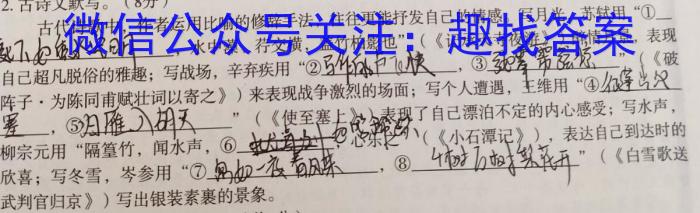 2. 古诗文默写。(8分)
古代 作者运用比喻的修辞手法，往往更能抒发自己的情感。写月光，苏轼用“①
微信公众号关注：趣找答案
水中藻、荇交横，盖竹柏影也”(《记承天寺夜游》) 表现
自己超凡脱俗的雅趣；写战场，辛弃疾用“② ，③ ”(《破
阵子·为陈同甫赋壮词以寄之》)来表现战争激烈的场面；写个人遭遇，王维用“④征蓬出汉
塞，⑤归雁入胡天”(《使至塞上》)表现了自己漂泊不定的内心感受；写水声，
柳宗元用“隔篁竹，闻水声，⑥ 心乐之”(《小石潭记》)，表达自己到达时的
欣喜；写冬雪，岑参用“⑦ 如一夜春风来，⑧ 千树万树梨花开”(《白雪歌送
武判官归京》)写出银装素裹的景象。